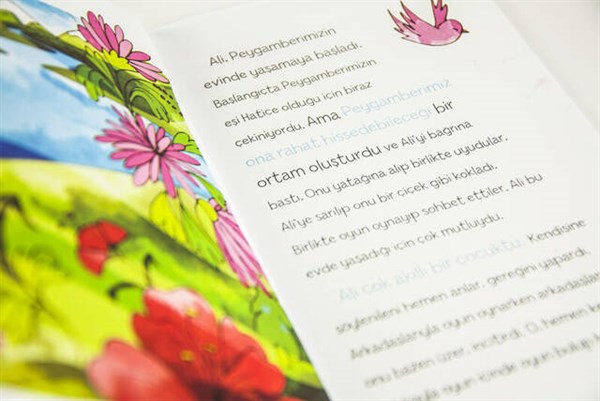 Ali, Peygamberimizin
evinde yaşamaya başladı.
Başlangıçta Peygamberimizin
eşi Hatice olduğu için biraz
çekiniyordu. Ama Peygamberimiz
ona rahat hissedebileceği bir
ortam oluşturdu ve Ali'yi bağrına
bastı. Onu yatağına alıp birlikte uyudular.
Ali'ye sarılıp onu bir çiçek gibi kokladı.
Birlikte oyun oynayıp sohbet ettiler. Ali bu
evde yaşadığı için çok mutluydu.
Ali çok akıllı bir çocuktu. Kendisine
söylenileni hemen anlar, gereğini yapardı.
Arkadaşlarıyla oyun oynarken arkadaşlar
onu bazen üzer, incitirdi. O, hemen k
oyun içinde oyun bulup